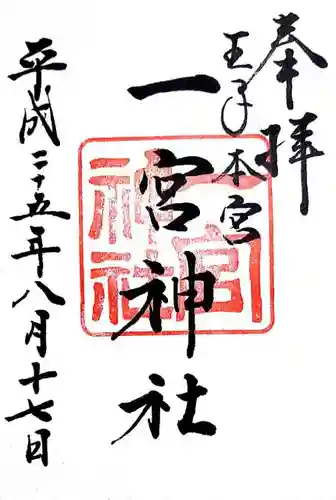 奉拝
王子本宮
一宮神社
平成二十五年八月十七日
一宮
神社